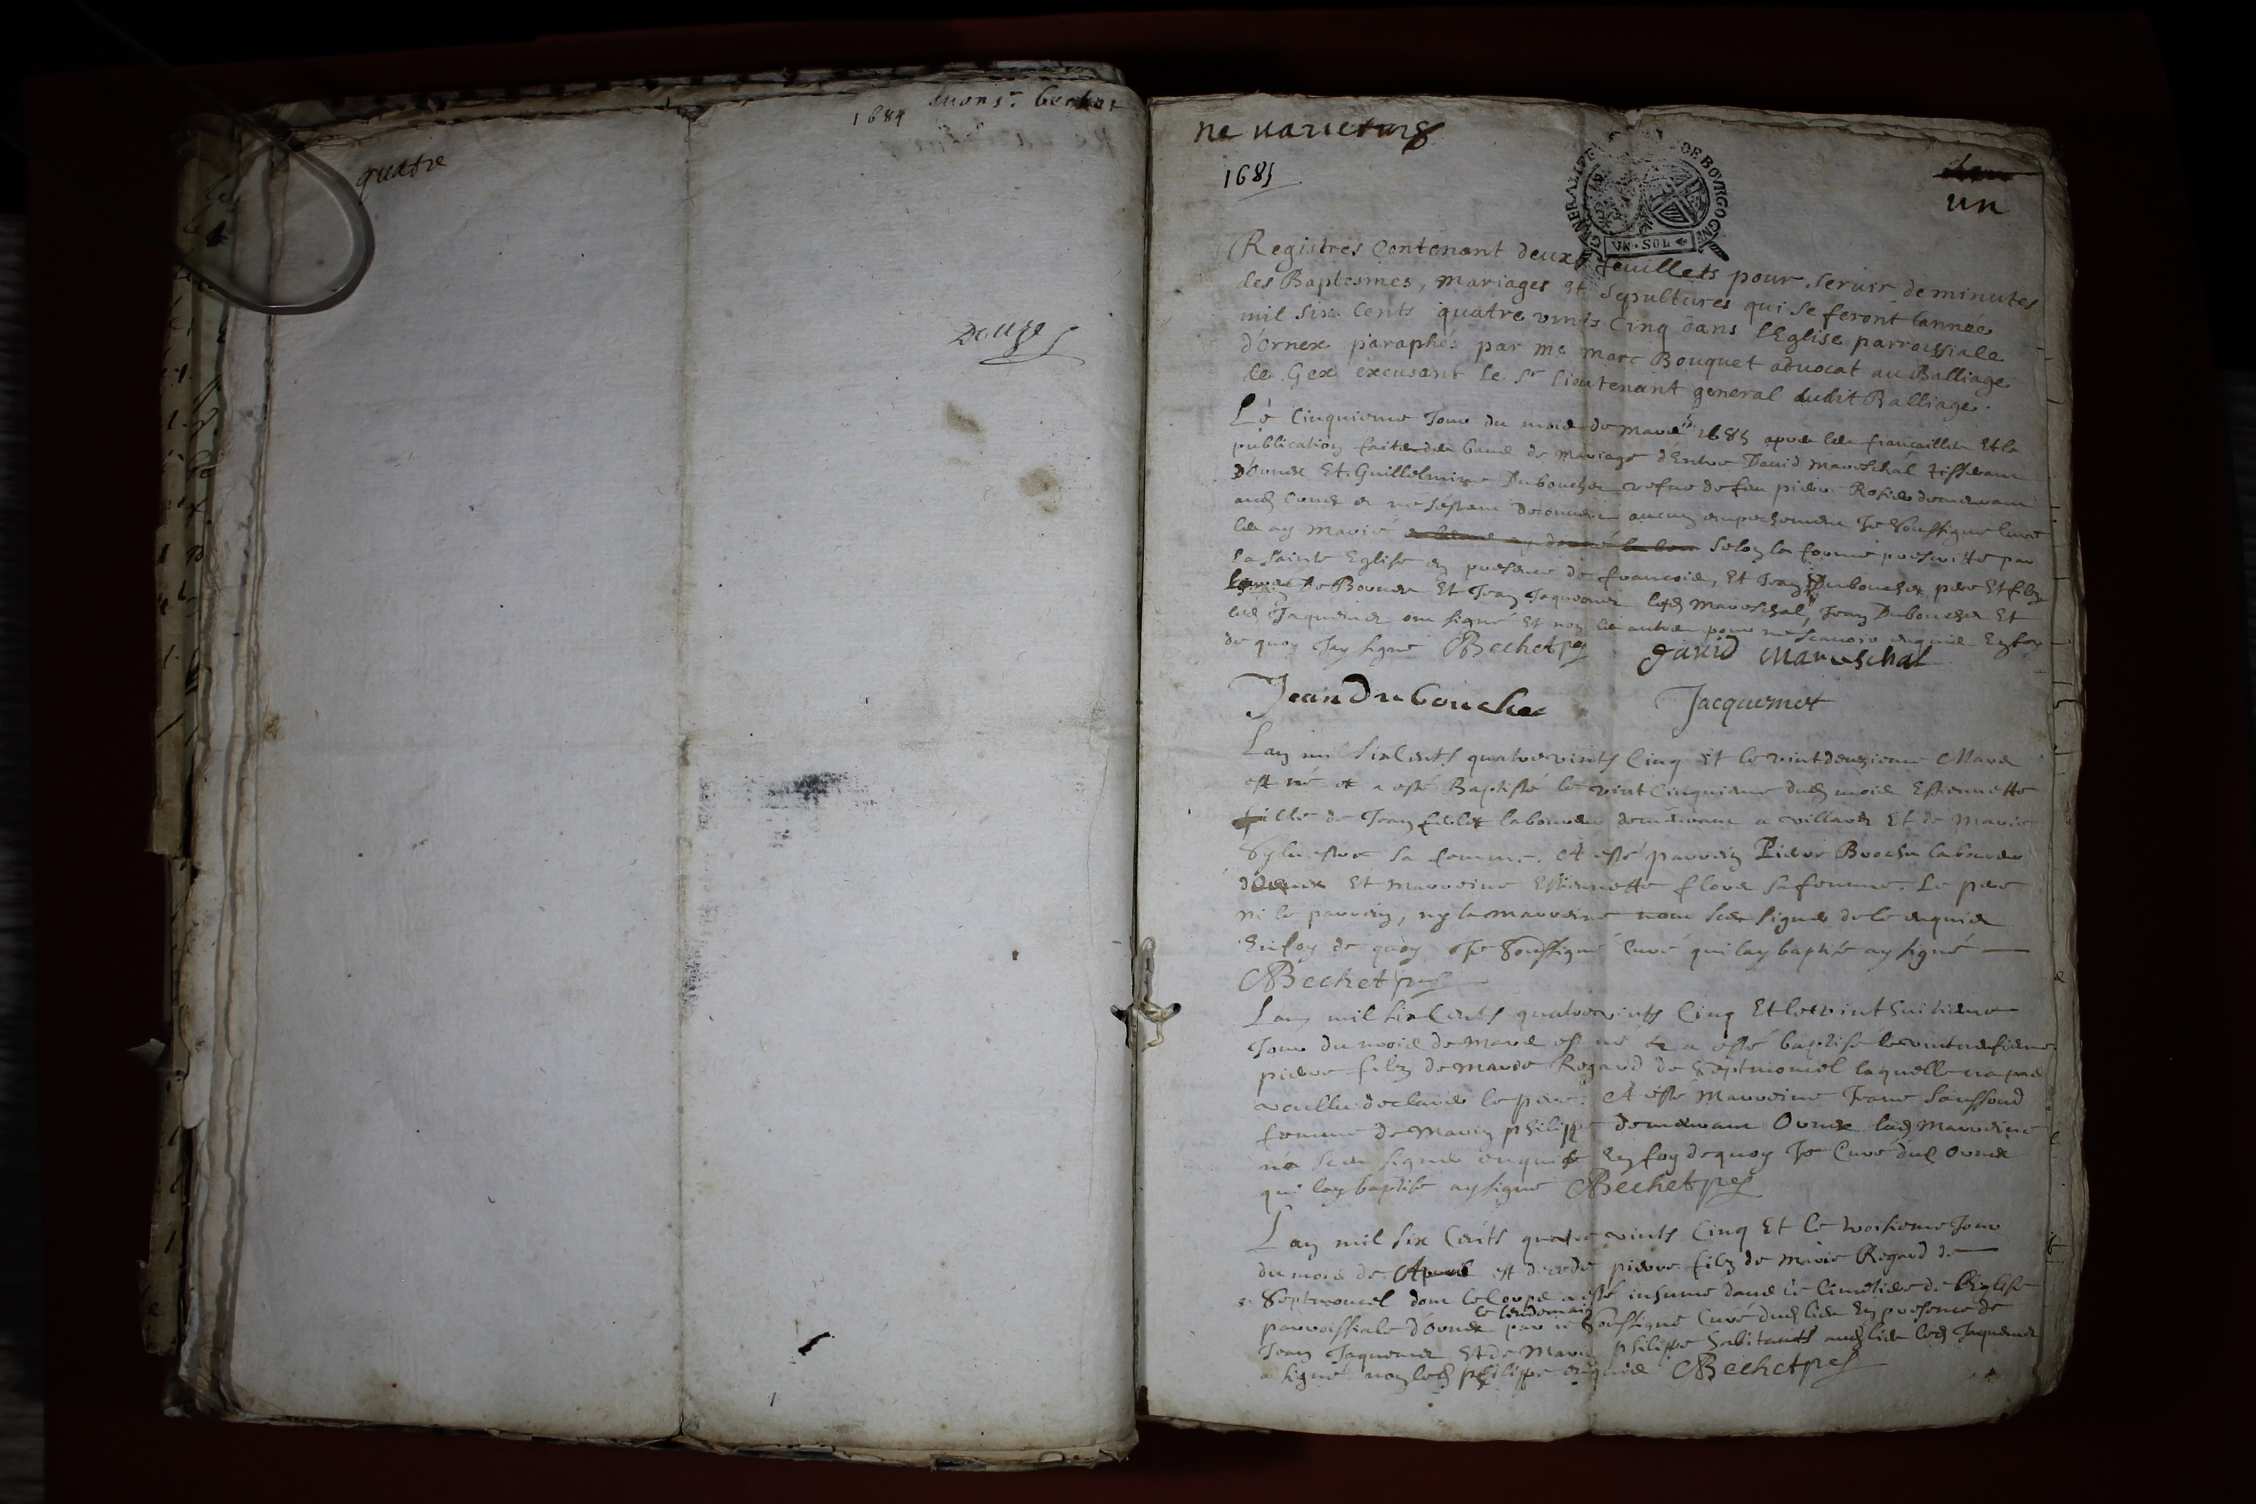 quatre
1684 Monsr. Bechet
ne varietur
1685
GENERALITE DE BOVRGOGNE
VN·SOL
un
Registres Contenant deux feuillets pour servir de minutes
des Baptesmes, mariages et sepultures qui se feront lannée
mil six Cents quatre vints Cinq dans l'Eglise parroissiale
d'Ornex paraphés par me marc Bouquet advocat au Balliage
de Gex excusant le Sr lieutenant general dudit Balliage.
Le Cinquieme Jour du mois de mars 1685 apres les fiancailles Et la
publication faite des bans de Mariage d'Entre David Mareschal tisseran
d'Ornex Et Guillelmine Dubouchet vefve de feu pierre demeurant
aud Ornex et ne s'estant decouvert aucun empechement Je Soussigné Curé
les ay Marié selon la forme prescritte par
la Sainte Eglise en presence de francois, Et Jean Dubouchet pere Et filz
de Et Jean Jaquemet lesd Mareschal, Jean Dubouchet Et
led Jaquemet ont signé Et non les autres pour ne scavoir enquis En foy
de quoy Jay signé Bechet pes david Mareschal
Jean Du bouchet Jacquemet
Lan mil six Cents quatre vints Cinq Et le vint deuzieme Mars
est né et a esté Baptisé le vint Cinquieme dud mois Estiennette
fille de Jean laboureur demeurant a villard Et de Marie
Sylvestre sa femme. A esté parrein Pierre Brochu laboureur
d'Ornex Et Marreine Estiennette flore sa femme. Le pere
ni le parrein, ny la marreine nont sceu signer de ce enquis
En foy de quoy Je Soussigné Curé qui lay baptisé ay signé
Bechet pes
Lan mil six Cents quatre vints Cinq Et le vint huitieme
Jour du mois de Mars est né et a esté baptisé le vint neufieme
pierre filz de Marie Regard de Septmoncel laquelle na pas
voullu declarer le pere. A esté Marreine Jeanne
femme de Marin philippe demeurant Ornex lad Marreine
na sceu signer enquise En foy de quoy Je Curé dud Ornex
qui lay baptisé ay signé Bechet pes
Lan mil six Cents quatre vints Cinq Et le troisieme Jour
du mois de Apvril est decedé pierre filz de Marie Regard de
Septmoncel dont le Corps a esté inhumé dans le Cimetiere de l'Eglise
le lendemain
parroissiale d'Ornex par ie Soussigné Curé dud lieu En presence de
Jean Jaquemet Et de Marin philippe habitants aud lieu led Jaquemet
a signé non led philippe enquis Bechet pes